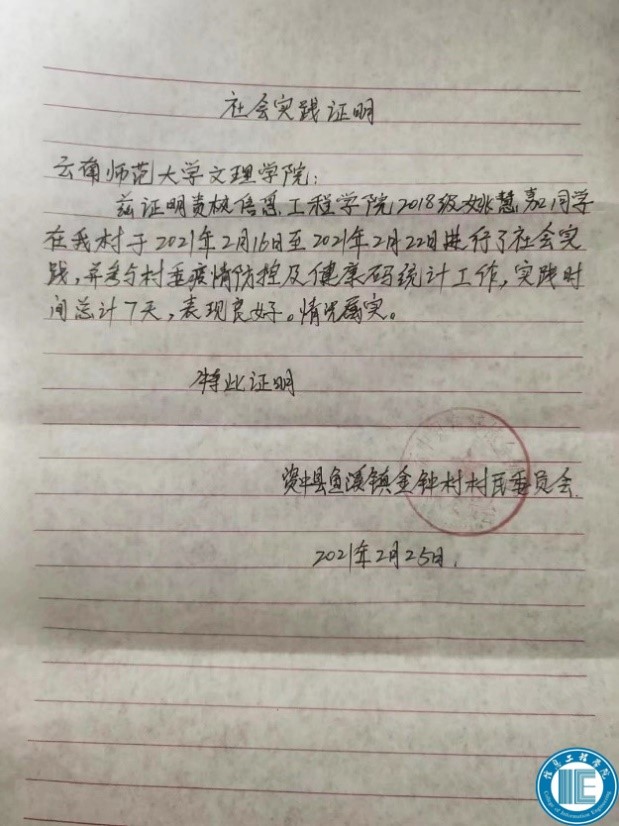 社会实践证明
云南师范大学文理学院：
兹证明贵校信息工程学院2018级姚慧嘉同学
在我村于2021年2月16日至2021年2月22日进行了社会实
践，并参与村委疫情防控及健康码统计工作，实践时
间总计7天，表现良好。情况属实。
特此证明
资中县鱼溪镇金钟村村民委员会
2021年2月25日.
信息工程学院
IE
College of Information Engineering